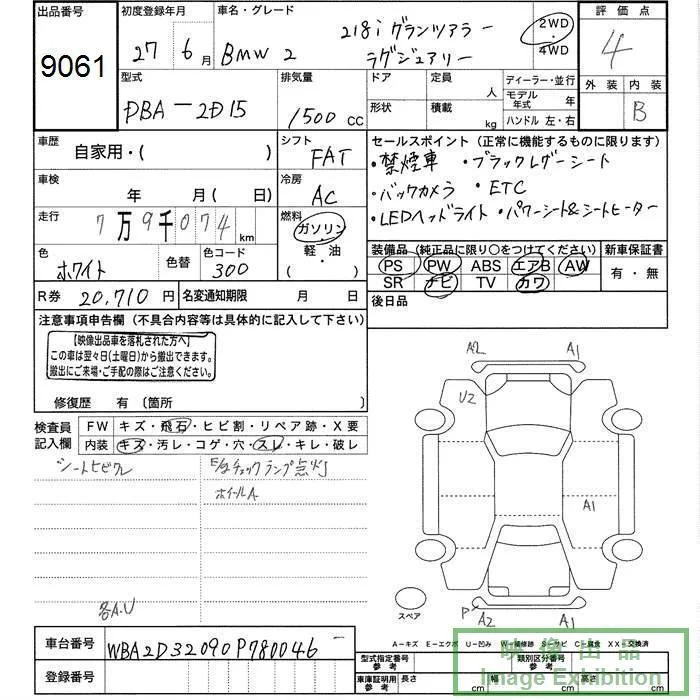 出品番号 初度登録年月 車名・グレード 評価点
9061 27 6月 BMW 2 218i グランツアラー ラグジュアリー 2WD・4WD 4
型式 排気量 ドア 定員 ディーラー・並行 外装 内装
DBA-2D15 1500cc 人 モデル年式 年 B
形状 積載 kg ハンドル 左・右
車歴 シフト セールスポイント (正常に機能するものに限ります)
自家用・( ) FAT ・禁煙車 ・ブラックレザーシート
車検 冷房 ・バックカメラ ・ETC
年 月(日) AC ・LEDヘッドライト ・パワーシート&シートヒーター
走行 燃料
7万9千074km ガソリン・軽・油 ( )
装備品 (純正品に限り○をつけてください) 新車保証書
色 色替 色コード PS PW ABS エアB AW 有・無
ホワイト 300 SR ナビ TV カワ
R券 20,710円 名変通知期限 月 日 後日品
注意事項申告欄 (不具合内容等は具体的に記入して下さい)
【映像出品車を落札された方へ】
この車は翌々日(土曜日)から搬出できます。
搬出にご来場・ご手配の際はご注意ください。
修復歴 有 〔箇所 〕
検査員記入欄 FW キズ・飛石・ヒビ割・リペア跡・X要
内装 キズ・汚レ・コゲ・穴・スレ・キレ・破レ
シートヒビワレ E/gチェックランプ点灯
ホイールA
各A.U
A2 A1
U2
A1
P A2 A1
スペア
A-キズ E-エクボ U-凹み W-補修跡 S-サビ C-腐食 XX-交換済
車台番号 WBA2D32090P780046
登録番号
型式指定番号 参考 類別区分番号 参考
車庫証明用 参考 長さ cm 幅 cm 高さ cm
映像出品
Image Exhibition